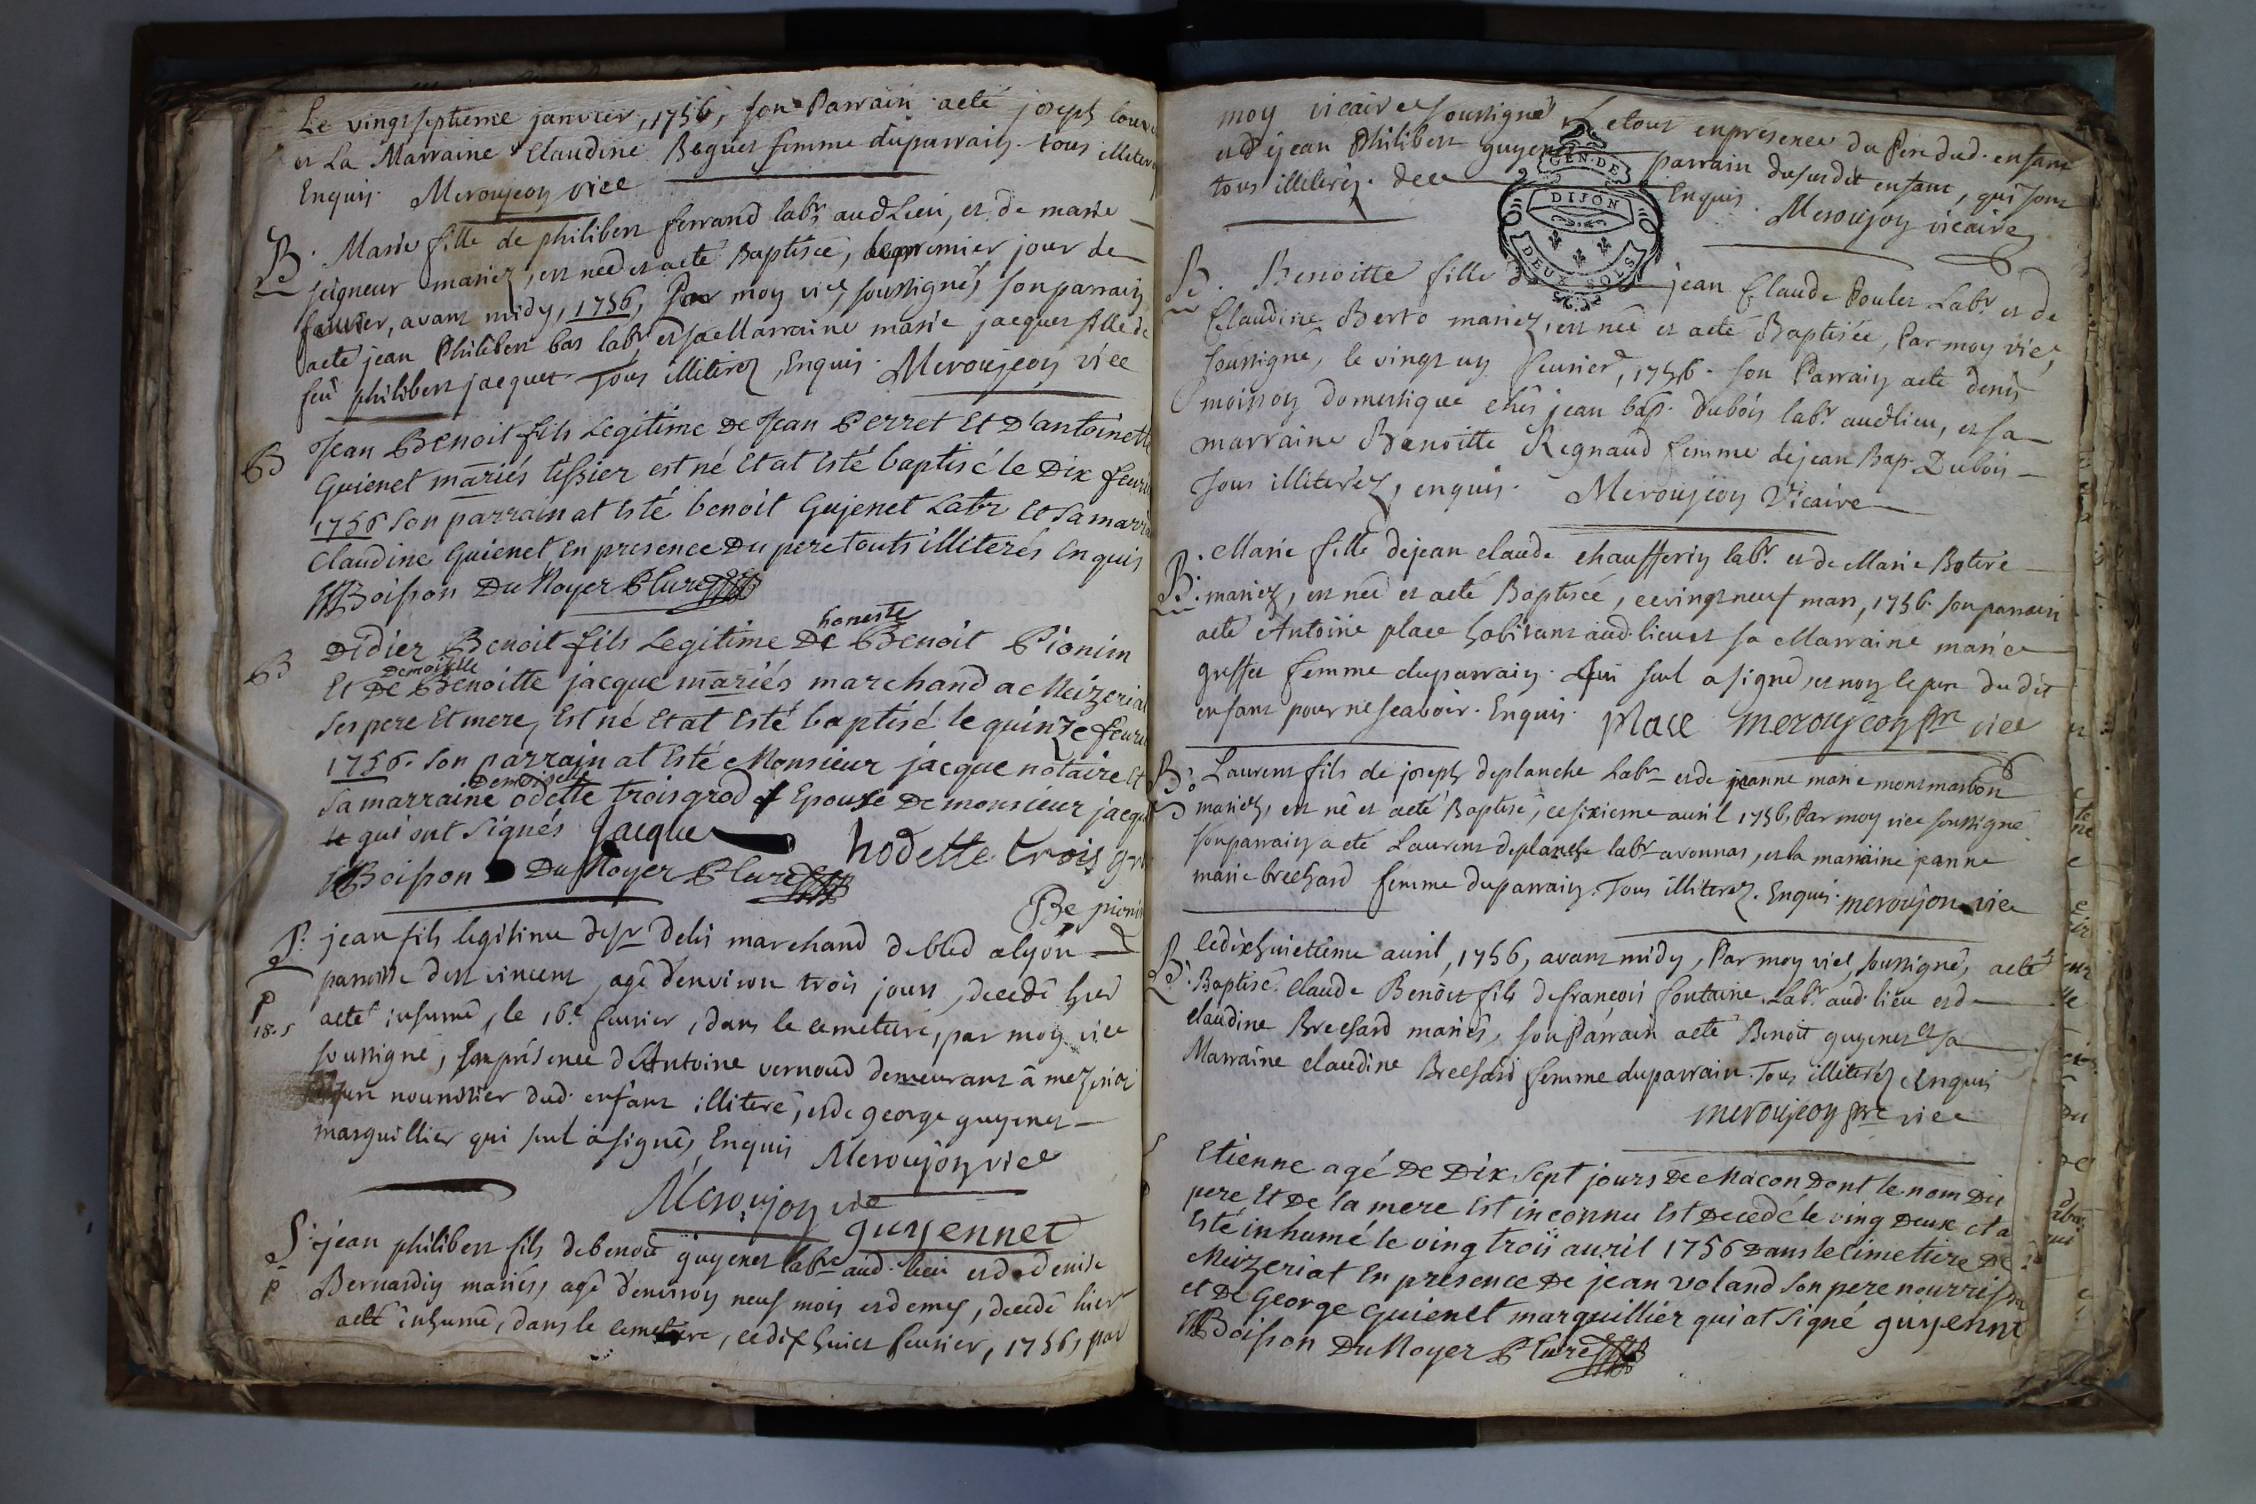 Le vingt septieme janvier, 1756, son Parrain aeté joseph
et La Marraine Claudine Boguet femme duparrain. tous illiter
Enquis. Meroujeon vice
B. Marie fille de philibert ferrand labr. audLieu, et de marie
seigneur mariez, est née et aeté Baptisée, le premier jour de
fevrier, avant midy, 1756, Par moy vice soussigné, son parrain
aeté jean Philibert bas labr et sa Marraine marie jacquet fille de
feû philibert jacquet. Tous illiterez, Enquis. Meroujeon vice
B Jean Benoit fils Legitime De Jean Perret Et D'antoinette
Guienet mariés tissier est né Et at Esté baptisé le Dix fevri
1756 son parrain at Esté benoit Gujenet Labr Et sa marra
Claudine Guienet En presence Du pere touts illiterés Enquis
Boisson Du Noyer Curé
honeste
B Didier Benoit fils Legitime De Benoit Pionin
Demoiselle
Et De Benoitte jacque mariés marchand a Meizeriat
ses pere Et mere, Est né Et at Esté baptisé le quinze feuri
1756. son parrain at Esté Monsieur jacque notaire Et
Demoiselle
sa marraine odette troisgrod Epouse De monsieur jacqu
qui ont signés Jacque hodette trois gro
Boisson Du Noyer Curé
Be pionin
S. jean fils legitime de sr. Delis marchand de bled a lyon
paroisse de st vincent, agé d'environ trois jours, decedé hier
p
18. s
aeté inhumé, le 16e. fevrier, dans le cemetiere, par moy vice
soussigné, en présence d'Antoine vernoud demeurant à mezeriat
pere nourissier dud. enfant illiteré, et de george guyenet
marguillier qui seul a signé, Enquis Meroujon vice
Meroujon vice
guyennet
S. jean philibert fils de benoit guyenet labr aud. lieu et de denise
p Bernardin mariés, agé d'environ neuf mois et demy, decedé hier
aeté inhumé, dans le cemetiere, ce dix huit fevrier, 1756, par
moy vicaire soussigné et tout en presence du Pere dud. enfant
et de jean Philibert guyenet parrain du susdit enfant, qui sont
tous illiterez. de ce Enquis. Meroujon vicaire
GEN. DE
DIJON
DEUX SOLS
B. Benoitte fille de jean Claude Poulet Labr et de
Claudine Berto mariez, est née et aeté Baptisée, Par moy vice,
soussigné, le vingt un fevrier, 1756. son Parrain aeté denis
moisson domestique chés jean bap. dubois labr. audlieu, et sa
marraine Benoitte Regnaud femme de jean Bap. Dubois
Tous illiterez, enquis. Meroujeon Vicaire
B. Marie fille de jean claude chaufferin labr. et de Marie Botere
mariez, est née et aeté Baptisée, ce vingt neuf mars, 1756. son parrain
aeté Antoine place habitant aud. lieu et sa Marraine marie
greffet femme du parrain. Qui seul a signé, et non le pere du dit
enfant pour ne scavoir. Enquis. place meroujeon ptre vice
B. Laurent fils de joseph deplanche Labr et de jeanne marie montmarbon
mariez, est né et aeté Baptisé, ce sixieme avril 1756, Par moy vice soussigné
son parrain a eté Laurent deplanche labr a vonnas, et la marraine jeanne
marie brechard femme du parrain. Tous illiterez. Enquis. meroujon vice
B. le dix huitieme avril, 1756, avant midy, Par moy vice, soussigné, aeté
Baptisé claude Benoit fils de françois fontaine Labr. aud. lieu et de
claudine Brechard mariés, son Parrain aeté Benoit guyenet et sa
Marraine claudine Brechard femme du parrain. Tous illiterez Enquis
meroujeon ptre vice
Etienne agé De Dix sept jours De Macon Dont le nom Du
pere Et De la mere Est inconnu Est Decedé le ving Deux et a
Esté inhumé le ving trois auril 1756 Dans le Cimetiere De
Meizeriat En presence De jean voland son pere nourrisi
et De George Guienet marguillier qui at signé guyenne
Boisson Du Noyer Curé